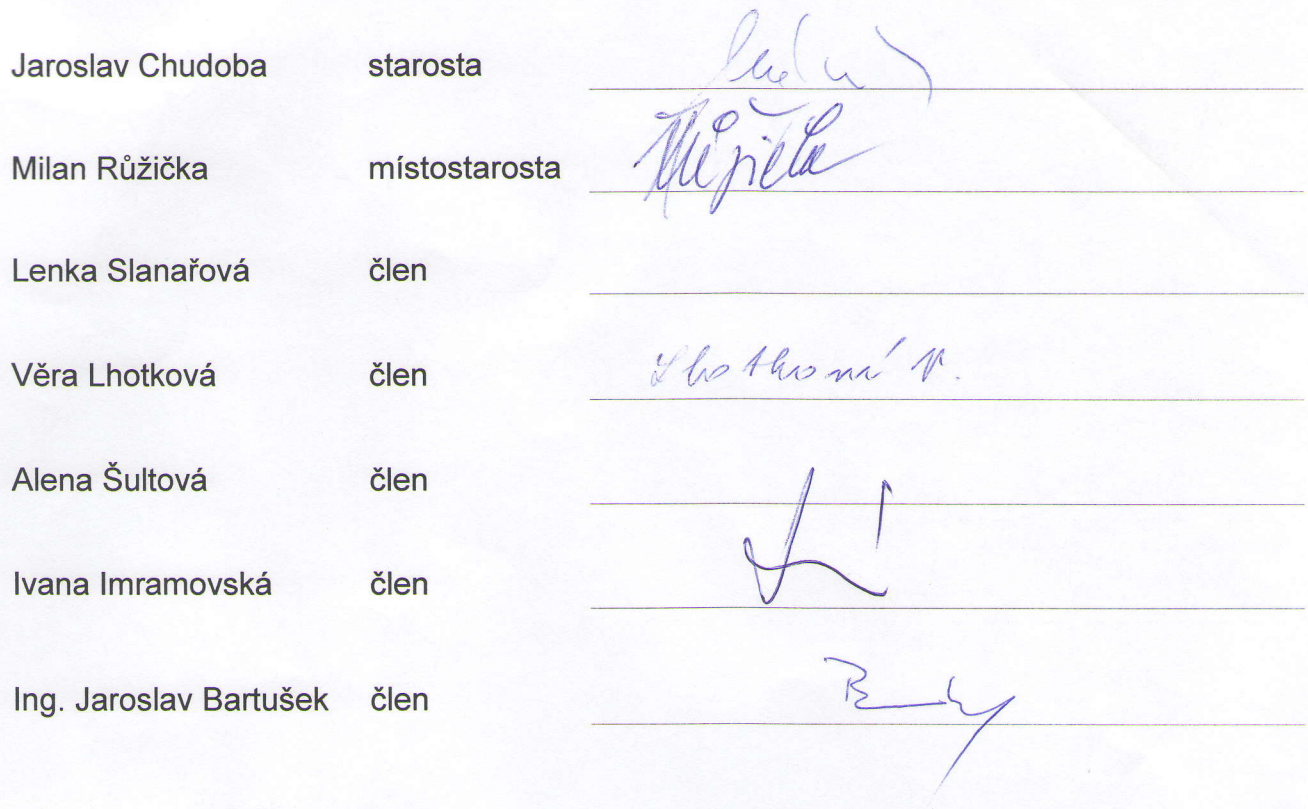 Jaroslav Chudoba starosta
Milan Růžička místostarosta Růžička
Lenka Slanařová člen
Věra Lhotková člen Lhotková V.
Alena Šultová člen
Ivana Imramovská člen
Ing. Jaroslav Bartušek člen